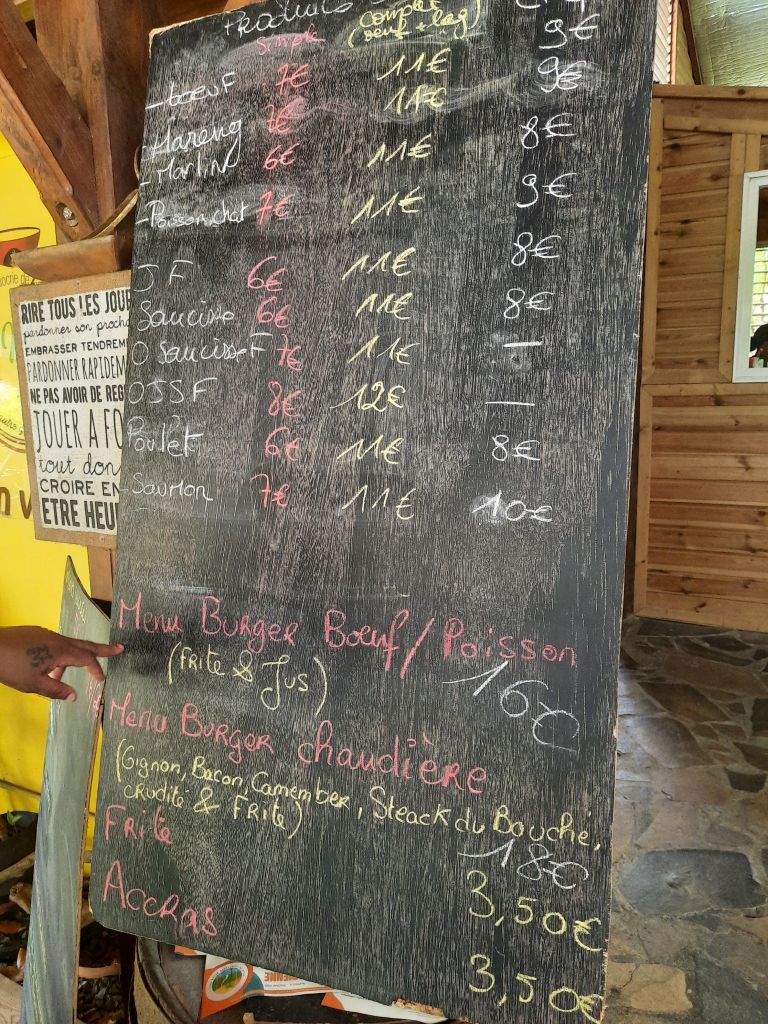 Produits
Simple
complet
(oeuf + leg)
9€
- boeuf 7€ 11€ 9€
- Hareng 7€ 11€
- Marlin 6€ 11€ 8€
- Poisson chat 7€ 11€ 9€
J F 6€ 11€ 8€
Saucisse 6€ 11€ 8€
O Saucisse F 7€ 11€ —
OJSF 8€ 12€ —
Poulet 6€ 11€ 8€
- Saumon 7€ 11€ 10€
Menu Burger Boeuf / Poisson
(Frite & Jus)
16€
Menu Burger chaudière
(Oignon, Bacon, Camember, Steack du Bouché,
crudité & Frite)
18€
Frite 3,50€
Accras 3,50€
RIRE TOUS LES JOUR
pardonner son procha
EMBRASSER TENDREM
PARDONNER RAPIDEM
NE PAS AVOIR DE REG
JOUER A FO
tout don
CROIRE EN
ETRE HEU